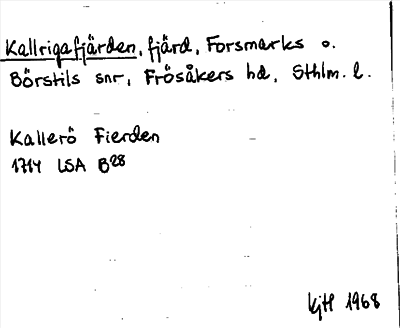 Kallrigafjärden, fjärd, Forsmarks o.
Börstils snr, Frösåkers hd, Sthlm. l.
Kallerö Fierden
1714 LSA B28
KjH 1968